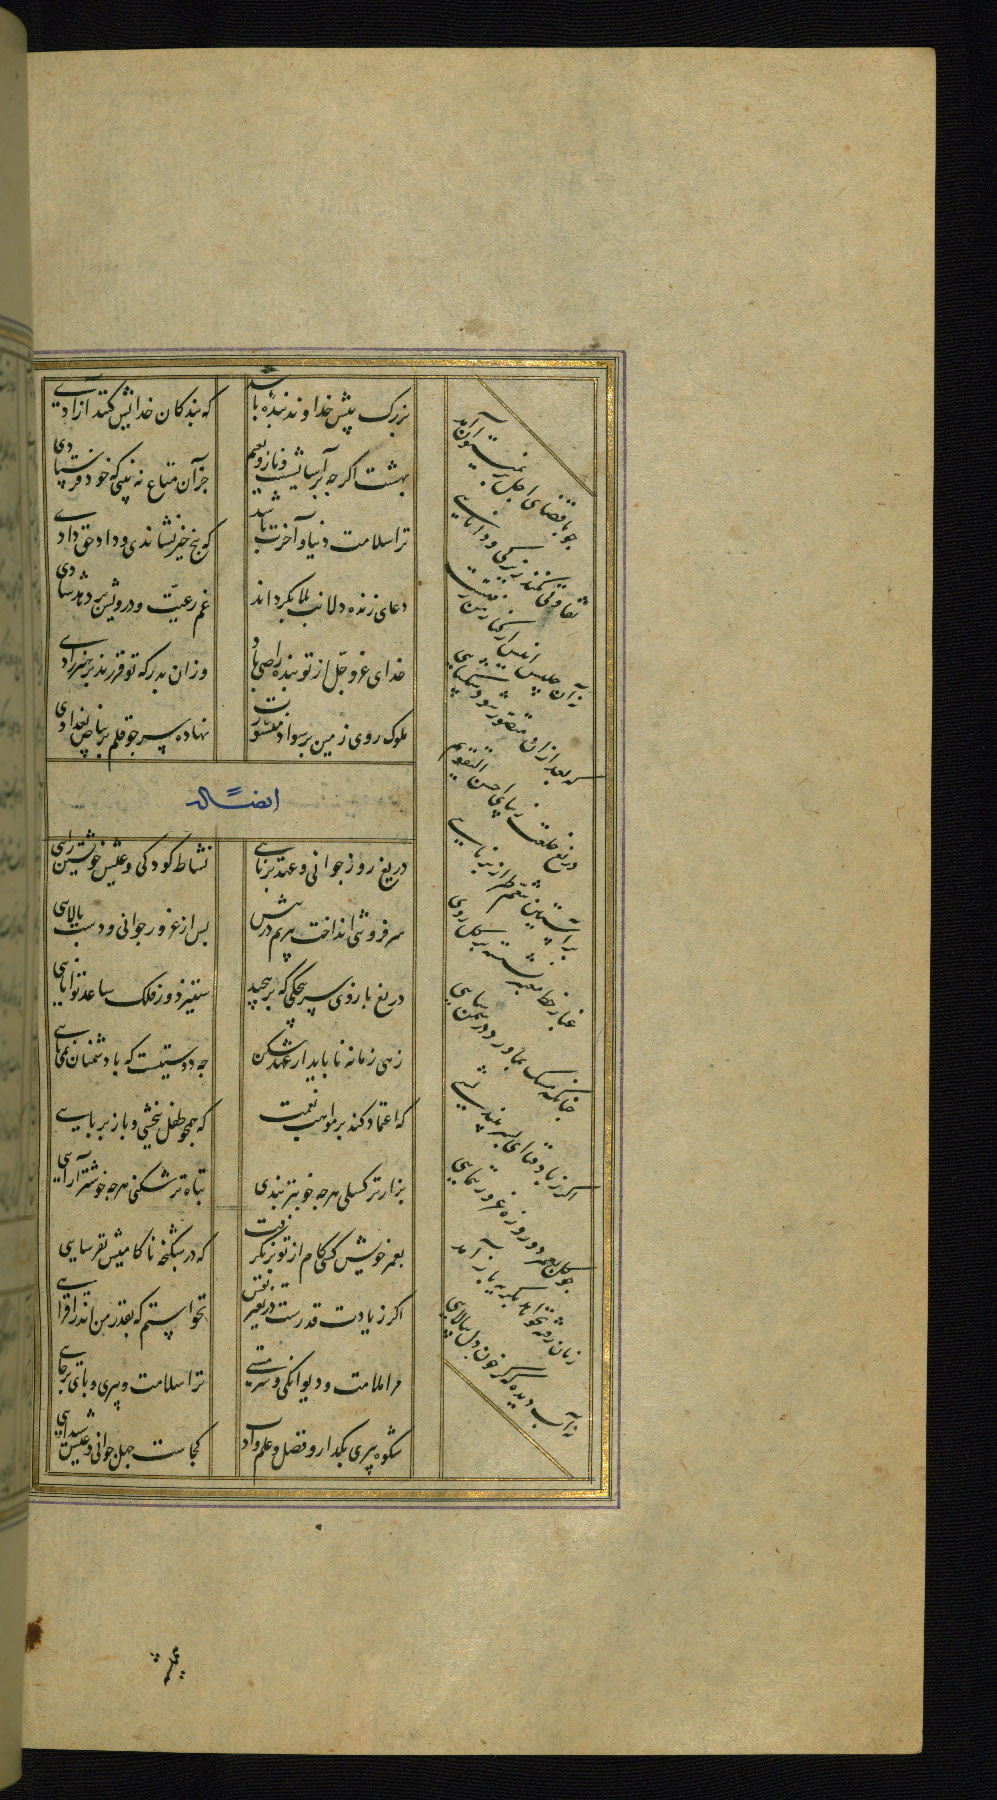 بزرک پیش خداوند بنده باشد
که بندکان خدایش کند آزادی
بهشت اکرچه پر آسایشست و ناز و نعیم
جز آن متاع نه بینی که خود فرستادی
ترا سلامت دنیا و آخرت باشد
که بیخ خیر نشاندی و داد حق دادی
دعای زنده دلانت بلا بکرداند
غم رعیت و درویش بردهد شادی
خدای عز و جل از تو بنده راضی باد
وزان پدر که تو فرزند پرهنر زادی
ملوک روی زمین بر سواد منشورت
نهاده سر چو قلم بر بیاض بغدادی
ایضاً له
دریغ روز جوانی و عهد برنایی
نشاط کودکی و عیش خویشتن رایی
سر فروتنی انداخت پیریم در پیش
پس از غرور جوانی و دست بالایی
دریغ بازوی سرپنجکی که برپیچد
ستیز دور فلک ساعد توانایی
زهی زمانه ناپایدار عهدشکن
چه دوستیست که با دشمنان نمی‌پایی
که اعتماد کند بر مواهب نعمت
که همچو طفل بخشی و باز بربایی
بزارتر کسلی هرچه خوبتر بندی
تباه‌تر شکنی هرچه خوشتر آرایی
بعمر خویش کسی کام از تو برنکرفت
که در شکنجه ناکامیش نفرسایی
اکر زیادت قدرست در تغیر نفس
نخواستم که بقدر من اندر افزایی
مرا ملامت و دیوانکی و سرمستی
ترا سلامت و پیری و پای برجایی
شکوه پیری بکذار و فضل و علم و ادب
کجاست جهل جوانی و عیش شیدایی
چو با قضای اجل بر نمیتوان آمد
تفاوتی نکند زیرکی و دانایی
نه آن جلیس انیس از کنار من رفتست
که بعد از آن متصور شود شکیبایی
دریغ خلعت زیبای احسن التقویم
بر آستین تنعم طراز زیبایی
غبار خط معنبر نشسته بر کل روی
چنانکه مشک بماورد در سمن سایی
اکر ز باد فنا ای پسر بیندیشی
چو کل بعمر دو روزه غرور ننمایی
زمان رفته نخواهد بکریه باز آمد
نه آب دیده که کر خون دل بپالایی